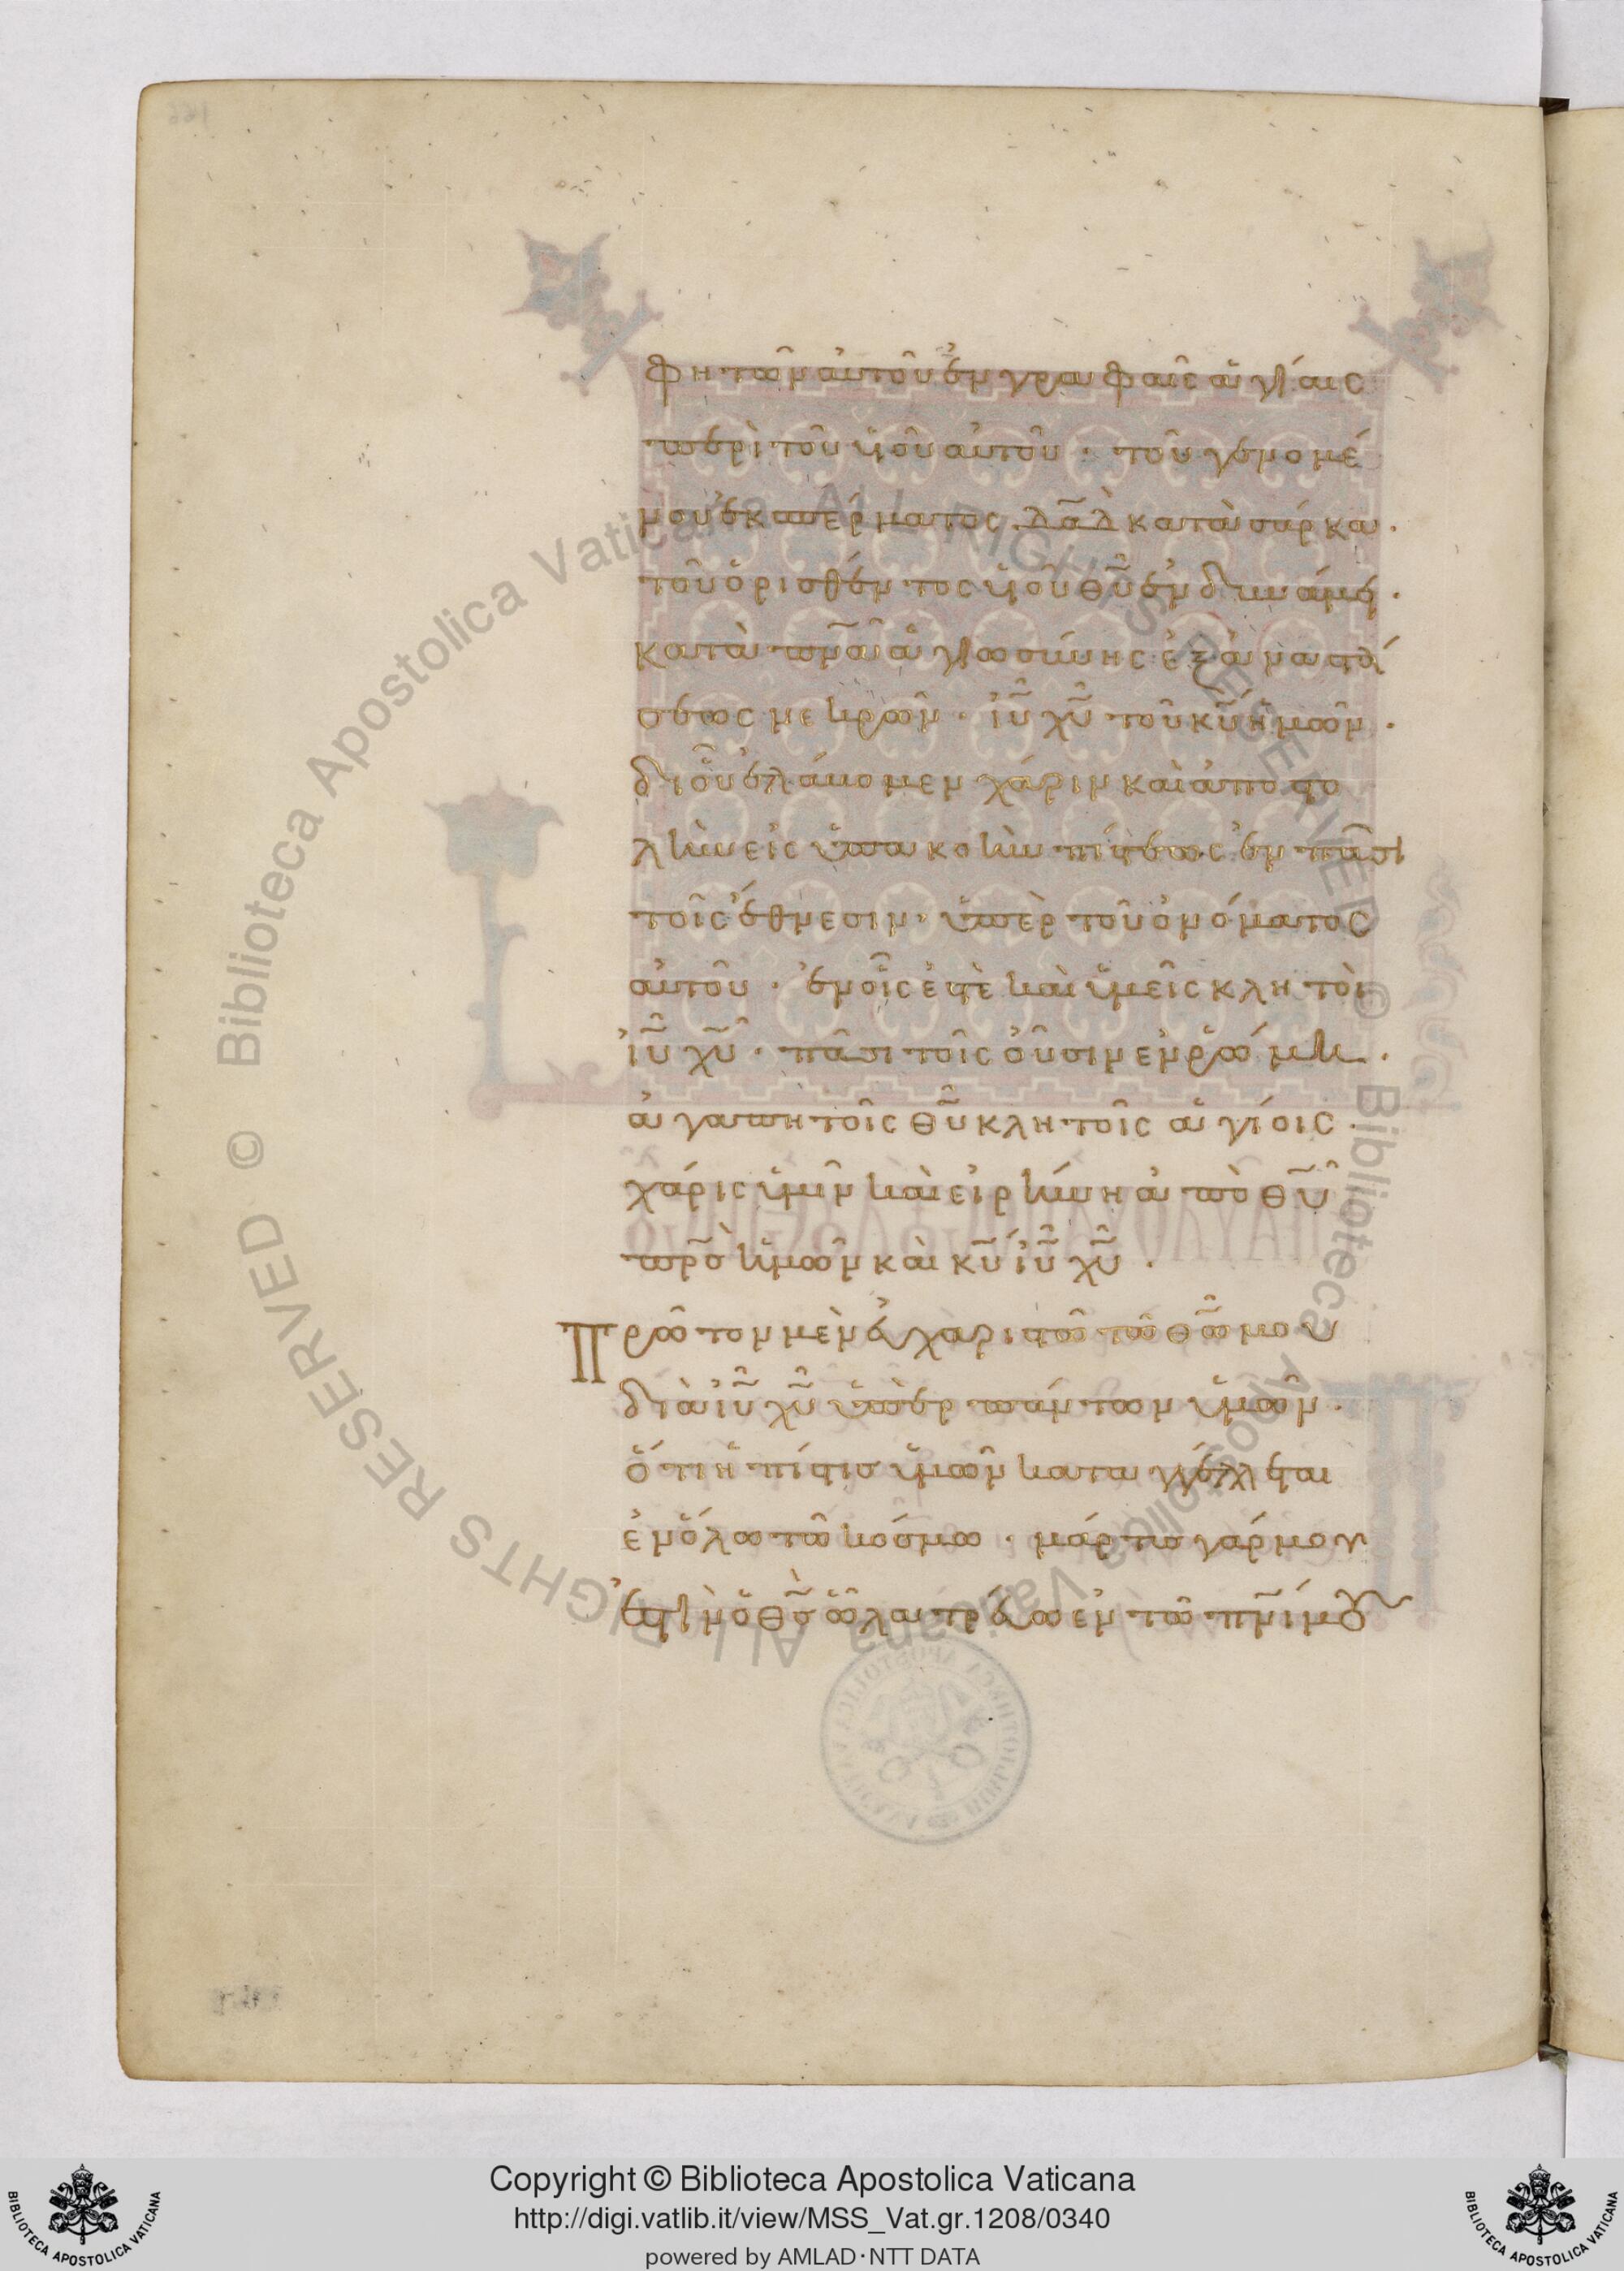 φητῶν αὐτοῦ ἐν γραφαῖς ἁγίαις
περὶ τοῦ υἱοῦ αὐτοῦ · τοῦ γενομέ
νου ἐκ σπέρματος δα̅δ κατὰ σάρκα ·
τοῦ ὁρισθέντος υἱοῦ θυ̅ ἐν δυνάμει ·
κατὰ πνα̅ ἁγιωσύνης ἐξ ἀναστά
σεως νεκρῶν · ιυ̅ χυ̅ τοῦ κυ̅ ἡμῶν ·
δι οὗ ἐλάβομεν χάριν καὶ ἀποστο
λὴν εἰς ὑπακοὴν πίστεως ἐν πᾶσι
τοῖς ἔθνεσιν · ὑπὲρ τοῦ ὀνόματος
αὐτοῦ · ἐν οἷς ἐστὲ καὶ ὑμεῖς κλητοὶ
ιυ̅ χυ̅ · πᾶσι τοῖς οὖσιν ἐν ῥώμῃ ·
ἀγαπητοῖς θυ̅ κλητοῖς ἁγίοις ·
χάρις ὑμῖν καὶ εἰρήνη ἀπὸ θυ̅
πρσ̅ ἡμῶν καὶ κυ̅ ιυ̅ χυ̅ ·
Πρῶτον μὲν εὐχαριστῶ τῶ θω̅ μου
διὰ ιυ̅ χυ̅ ὑπὲρ πάντων ὑμῶν ·
ὅτι ἡ πίστις ὑμῶν καταγγέλλεται
ἐν ὅλω τῶ κόσμω · μάρτυς γάρ μου
ἐστὶν ὁ θσ̅ ὧ λατρεύω ἐν τῶ πνι̅ μου
© Biblioteca Apostolica Vaticana ALL RIGHTS RESERVED © Biblioteca Apostolica Vaticana ALL RIGHTS RESERVED
BIBLIOTECA APOSTOLICA VATICANA
Copyright © Biblioteca Apostolica Vaticana
http://digi.vatlib.it/view/MSS_Vat.gr.1208/0340
powered by AMLAD·NTT DATA
BIBLIOTECA APOSTOLICA VATICANA
BIBLIOTECA APOSTOLICA VATICANA